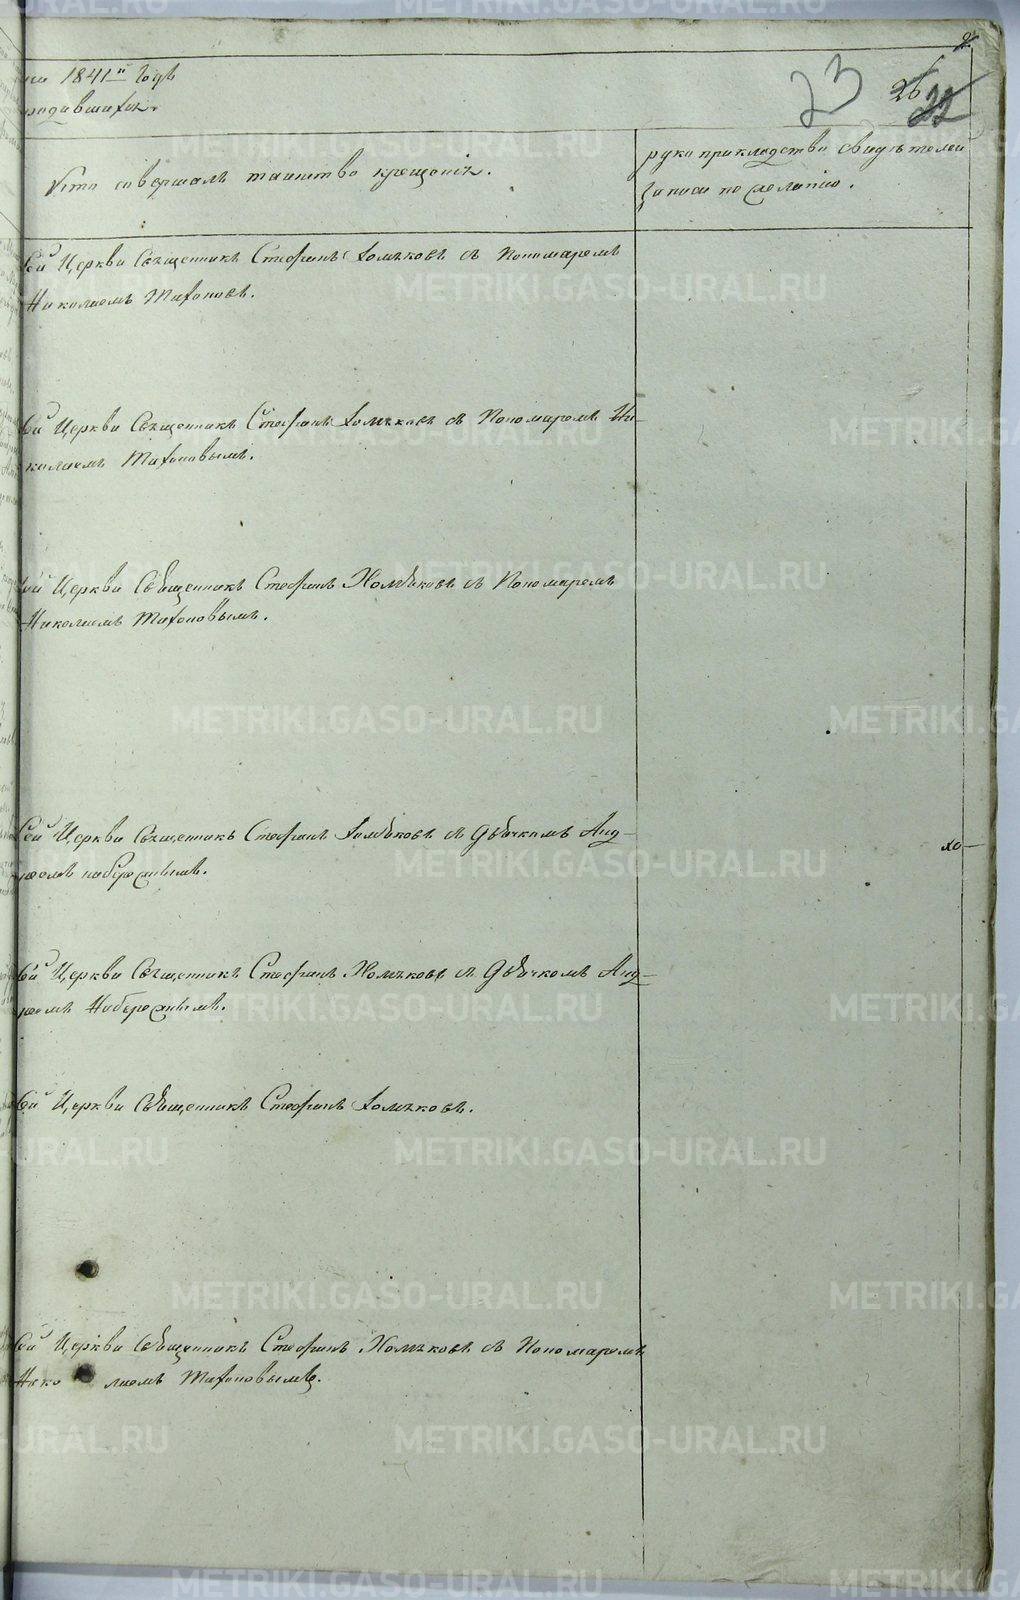 2
на 1841й Годъ
родившихся.
23
26 22
Кто совершалъ таинство крещенія.
рукоприкладство свидѣтелей
записи по желанію.
Сей Церкви Священникъ Стефанъ Хомяковъ съ Пономаремъ
Николаемъ
Сей Церкви Священникъ Стефанъ Хомяковъ съ Пономаремъ Ни-
колаемъ
Сей Церкви Священникъ Стефанъ Хомяковъ съ Пономаремъ
Николаемъ
Сей Церкви Священникъ Стефанъ Хомяковъ съ Дьячкомъ Анд-
реемъ набережнымъ.
Сей Церкви Священникъ Стефанъ Хомяковъ съ Дьячкомъ Анд-
реемъ Набережнымъ.
Сей Церкви Священникъ Стефанъ Хомяковъ.
Сей Церкви Священникъ Стефанъ Хомяковъ съ Пономаремъ
Нико лаемъ
METRIKI.GASO-URAL.RU